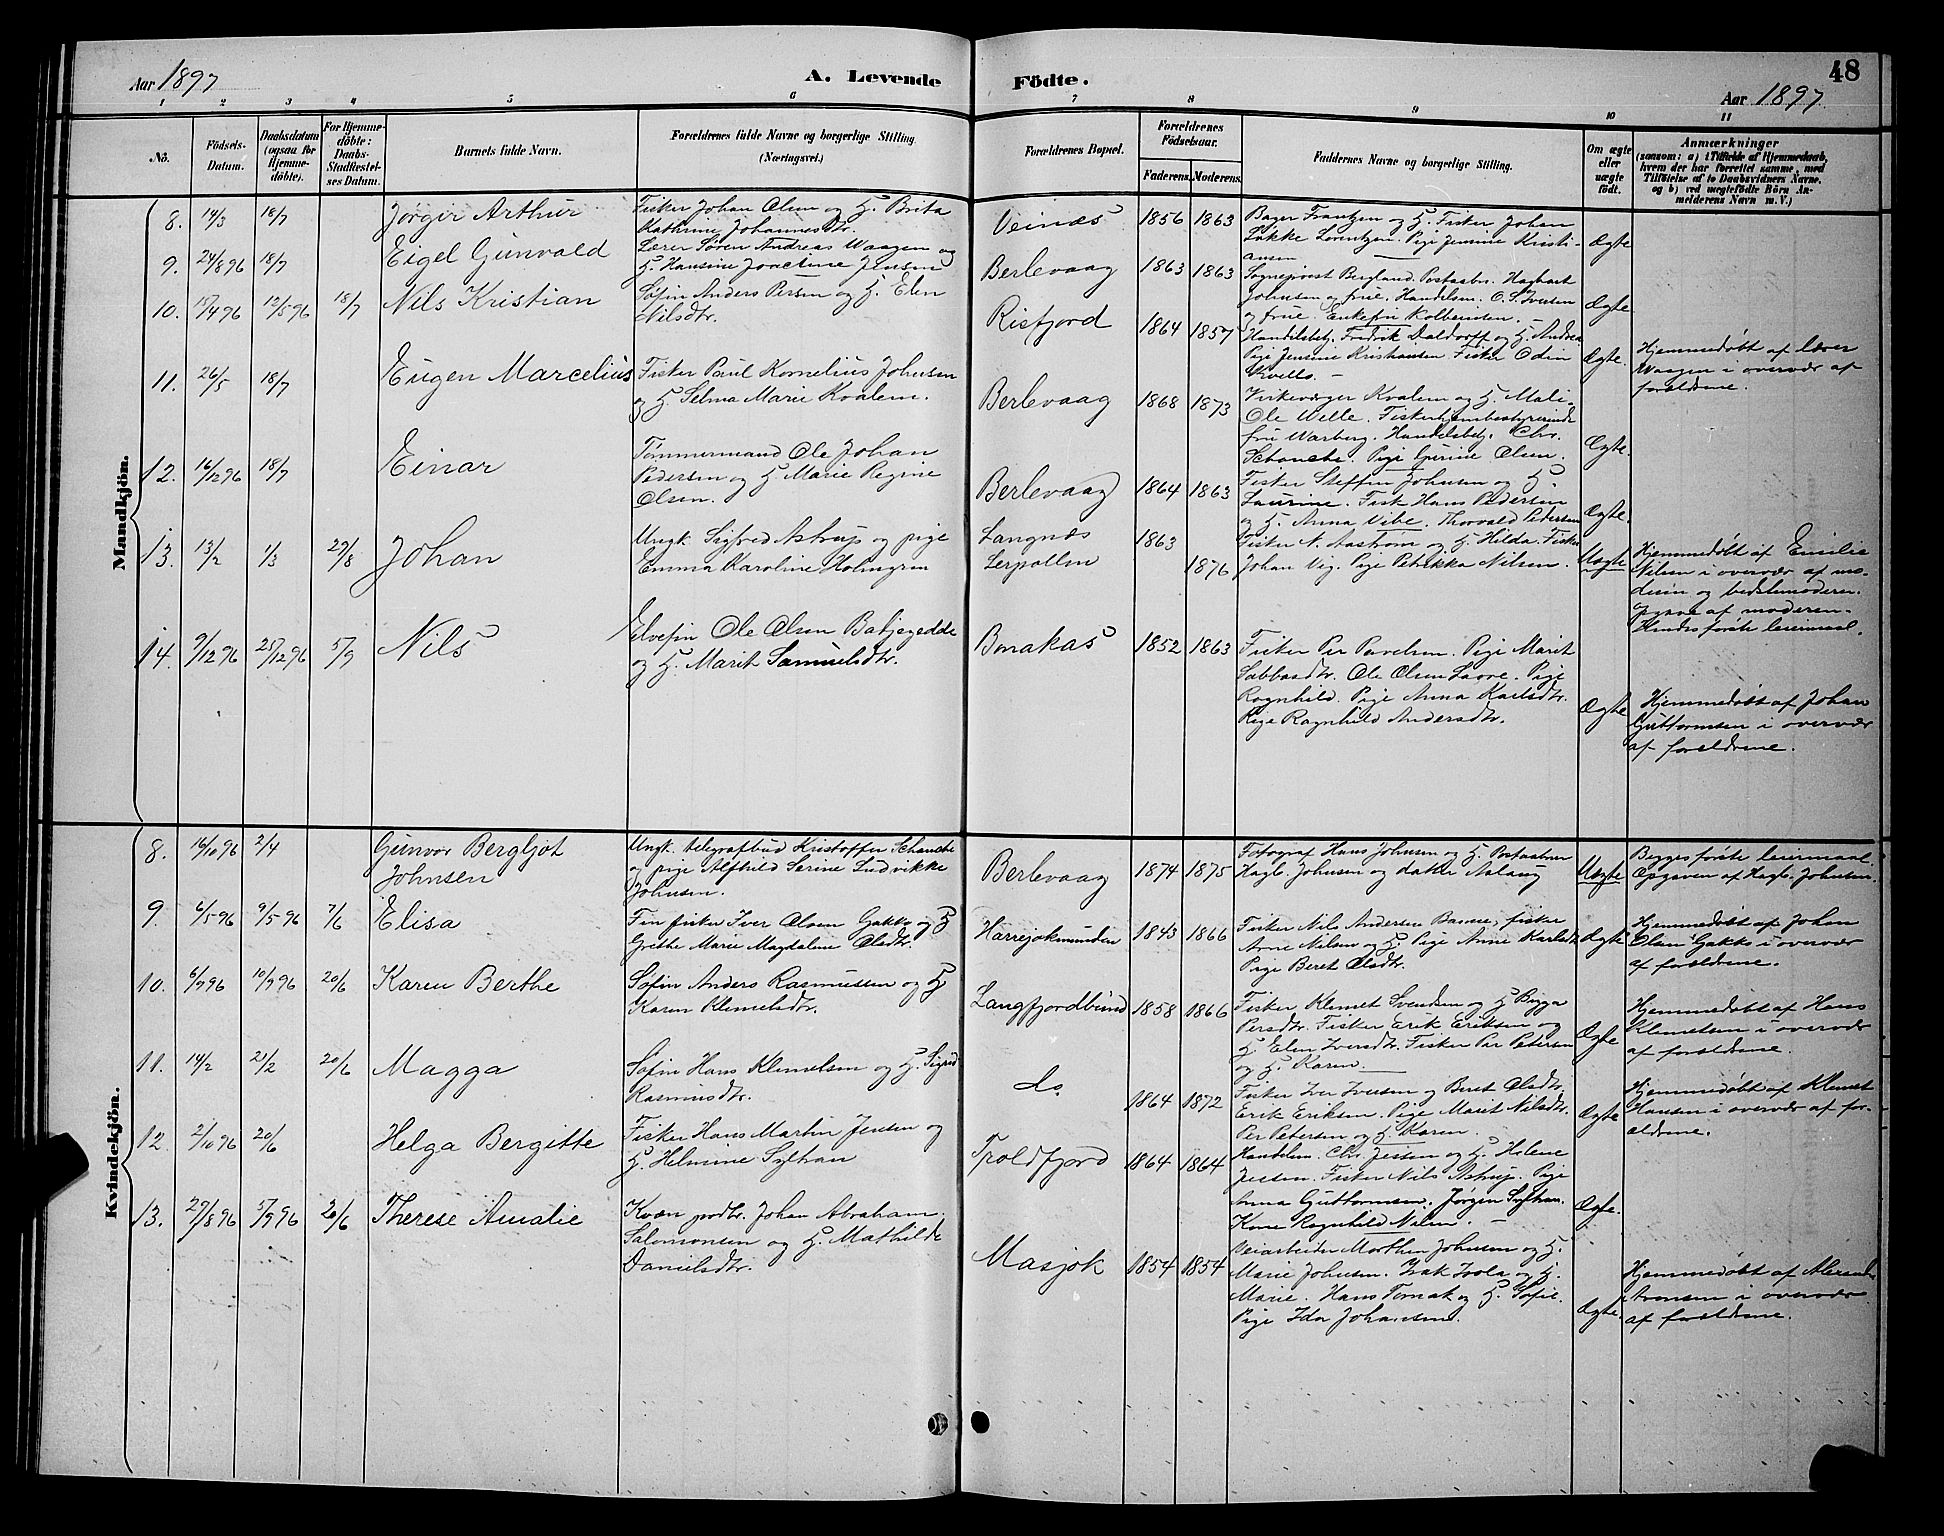 Aar 1897
A. Levende
Födte.
48
Aar 1897
1 2 3 4 5 6 7 8 9 10 11
No.
Födsels-Datum.
Daabsdatum (ogsaa for Hjemme-döbte).
For Hjemme-döbte: Daabs-Stadfæstel-ses Datum.
Barnets fulde Navn.
Forældrenes fulde Navne og borgerlige Stilling.
(Næringsvei.)
Forældrenes Bopæl.
Forældrenes Födselsaar.
Faderens. Moderens.
Faddernes Navne og borgerlige Stilling.
Om ægte eller uægte født.
Anmærkninger
(saasom: a) i Tilfælde af Hjemmedaab, hvem der har forrettet samme, med Tilföielse af to Daabsvidners Navne. og b) ved uægtefödte Börn Anmelderens Navn m. V.)
Mandkjön.
8. 14/3 18/7 Jørgir Arthur
Fisker Johan Olsen og H. Brita
Kathrine Johannesdtr.
Veinæs 1856 1863
Bager Frantzen og H. Fisker Johan
Løkke Lorentzen. Pige Jensine Kristi-
ansen
Ægte
9. 24/8 96 18/7 Eigel Gunvald
Lærer Søren Andreas Waagen og
H. Hansine Joactine Jensen
Berlevaag 1863 1863
Sogneprest Bergland. Postaabn. Hagbart
Johnsen og frue. Handelsm. O. S. Iversen
og frue. Enkefru Kolbensen.
Ægte
10. 15/4 96 12/5 96 18/7 Nils Kristian
Søfin Anders Persen og H. Elen
Nilsdtr.
Risfjord 1864 1857
Handelsbetj. Fredrik Daldorff og H. Andrea
Pige Jensine Kristiansen Fisker Odin
Kvello.
Ægte.
Hjemmedøbt af lærer
Waagen i overvær af
forældrene.
11. 26/5 18/7 Eugen Marcelius
Fisker Paul Kornelius Johnsen
og H. Selma Marie Kvalem.
Berlevaag 1868 1873
Kirkeværger Kvalem og H. Mali.
Ole Welle. Fiskerhjembestyrerinde
fru Warberg. Handelsbetj. Chr.
Schanche. Pige Olsen.
Ægte.
12. 16/12 96 18/7 Einar
Tømmermand Ole Johan
Pedersen og H. Marie Regine
Olsen.
Berlevaag 1864 1863
Fisker Steffen Johnsen og H.
Laurine. Fisk Hans Pedersen
og H. Anna Vibe. Thorvald Pedersen
Ægte.
13. 13/2 1/3 29/8 Johan
Ungk. Sigfred Astrup og pige
Emma Karoline Holmgren
Langnæs 1863
Lerpollen 1876
Fisker N. Aastrom og H. Hilda. Fisker
Johan Vig. Pige Petrikka Nilsen.
Uægte
Hjemmedøbt af Emilie
Nilsen i overvær af mo-
deren og bedstemoderen.
Opgave af moderen.
Kindes første leiermaal.
14. 9/12 96 25/12 96 5/9 Nils
Elvefin Ole Olsen Batjegedde
og H. Marit Samuelsdtr.
Bonakas 1852 1863
Fisker Per Pavelsen. Pige Marit
Sabbasdtr. Ole Olsen Lavre. Pige
Ragnhild. Pige Anna Karlsdtr.
Pige Ragnhild Andersdtr.
Ægte
Hjemmedøbt af Johan
Guttormsen i overvær
af forældrene.
Kvindekjön.
8. 16/10 96 2/4 Gunvor Bergljot
Johnsen
Ungk. telegrafbud Kristoffer Schanche
og pige Alfhild Serine Ludvikke
Johnsen.
Berlevaag 1874 1875
Fotograf Hans Johnsen og H. Postaabner
Hagb. Johnsen og datter Aslaug
Uægte
Begges første leiermaal.
Opgaven af Hagb. Johnsen.
9. 6/5 96 9/5 96 7/6 Elisa
Fin fisker Iver Olsen Gakko og H
Grethe Marie Magdalene Olsdtr.
Harrejokmunden 1843 1866
Fisker Nils Andersen Banne, fisker
Arne Nilsen og H. Pige Anne Karlsdtr.
Pige Beret Olsdtr.
Ægte
Hjemmedøbt af Johan
Olsen Gakko i overvær
af forældrene.
10. 6/9 96 10/9 96 20/6 Karen Berthe
Søfin Anders Rasmussen og H
Karen Klemetsdtr.
Langfjordbund 1858 1866
Fisker Klemet Svendsen og H Bigga
Persdtr. Fisker Erik Eriksen og
H. Elen Iversdtr. Fisker Per Petersen
og H. Karen.
Ægte
Hjemmedøbt af Hans
Klemetsen i overvær
af forældrene.
11. 14/2 21/2 20/6 Magga
Søfin Hans Klemetsen og H. Sigrid
Rasmusdtr.
do. 1864 1872
Fisker Iver Iversen og Beret Olsdtr.
Erik Eriksen. Pige Marit Nilsdtr.
Per Petersen og H. Karen.
Ægte
Hjemmedøbt af Klemet
Hansen i overvær af for-
ældrene.
12. 2/10 96 20/6 Helga Bergitte
Fisker Hans Martin Jensen og
H. Helmine Sylthan
Troldfjord 1864 1864
Handelsm. Chr. Jessen og H. Helene
Jessen. Fisker Nils Astrup. Pige
Anna Guttormsen. Jørgen Sylthan.
Kone Ragnhild Nilsen.
Ægte.
13. 27/8 96 5/9 96 20/6 Therese Amalie
Kvæn Johan Abraham
Salomonsen og H. Mathilde
Danielsdtr.
Masjok 1854 1854
Veiarbeider Morthen Johnsen og H.
Marie Johnsen. Isak Isola og H.
Marie. Hans Tornak og H. Sofie.
Pige Ida Johansen.
Ægte.
Hjemmedøbt af Alexander
Aronsen i overvær
af forældrene.